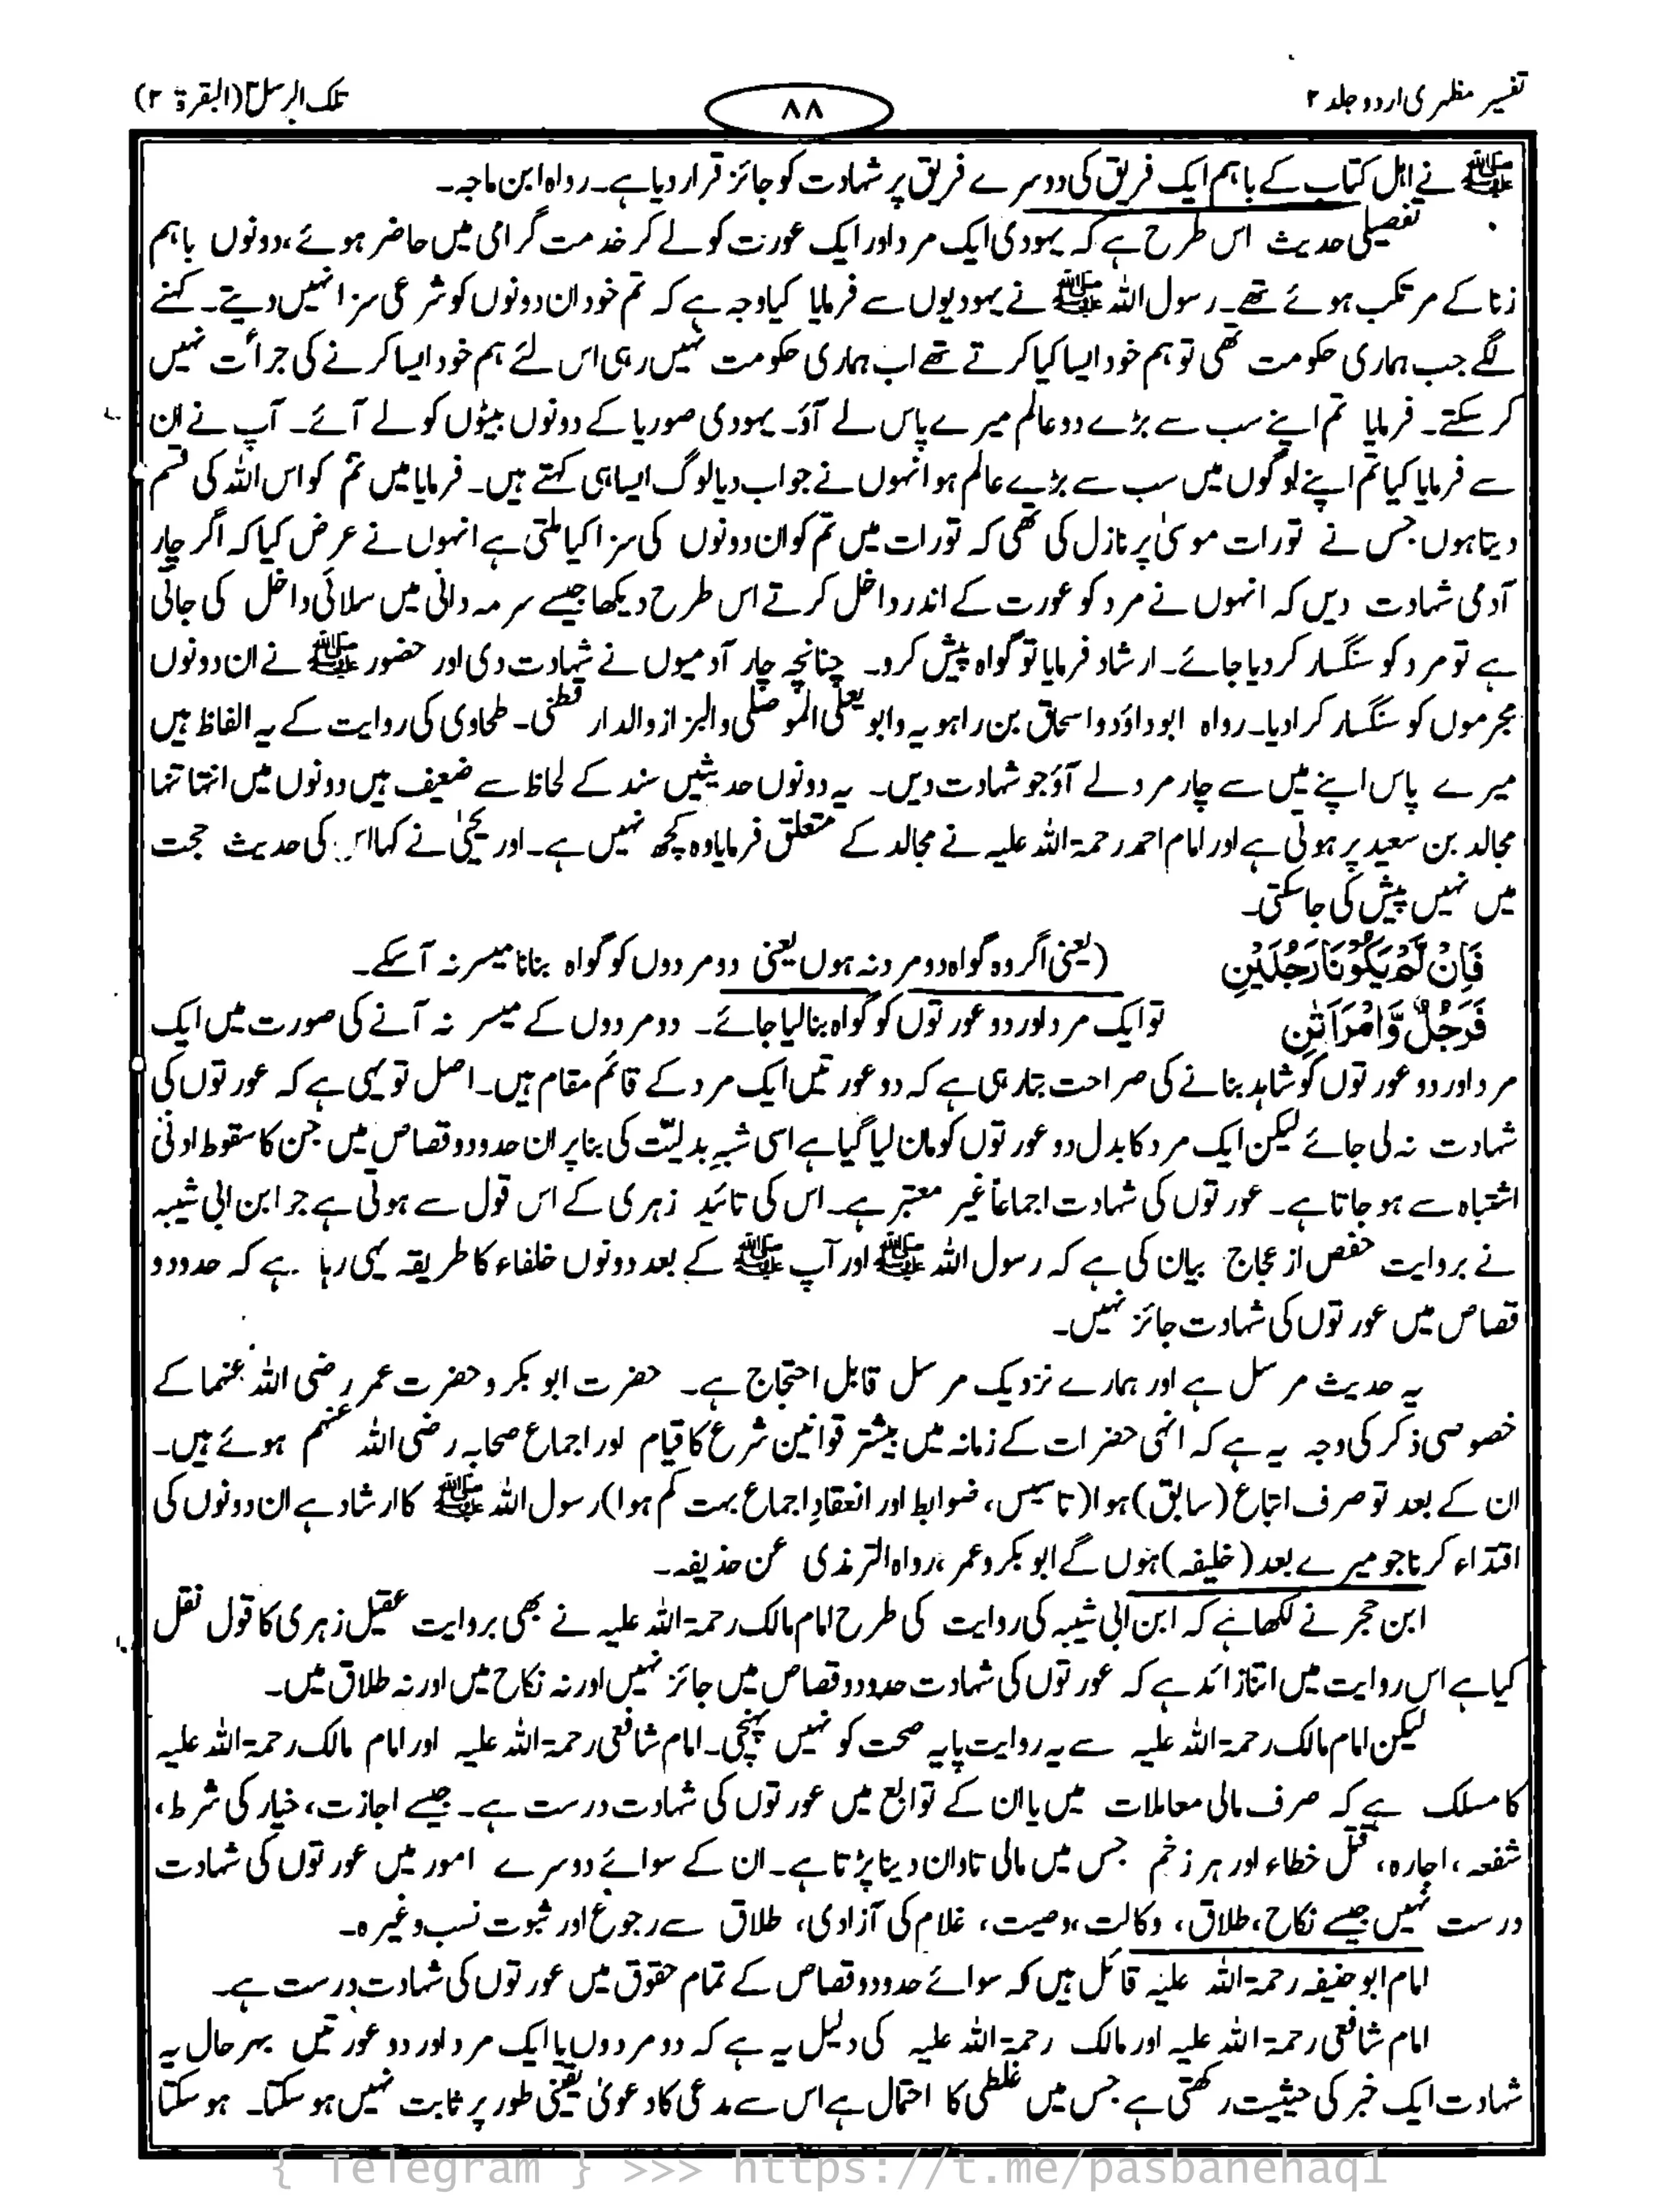 تفسیر مظہری اردو جلد ۲
۸۸
تلک الرسل (البقرۃ ۲)
ﷺ نے اہل کتاب کے باہم ایک فریق کی دوسرے فریق پر شہادت کو جائز قرار دیا ہے۔ رواہ ابن ماجہ۔
تفصیلی حدیث اس طرح ہے کہ یہودی ایک مرد اور ایک عورت کو لے کر خدمت گرامی میں حاضر ہوئے، دونوں باہم
زنا کے مرتکب ہوئے تھے۔ رسول اللہ ﷺ نے یہودیوں سے فرمایا کیا وجہ ہے کہ تم خود ان دونوں کو شرعی سزا نہیں دیتے۔ کہنے
لگے جب ہماری حکومت تھی تو ہم خود ایسا کیا کرتے تھے اب ہماری حکومت نہیں رہی اس لئے ہم خود ایسا کرنے کی جرأت نہیں
کر سکتے۔ فرمایا تم اپنے سب سے بڑے دو عالم میرے پاس لے آؤ۔ یہودی صوریا کے دونوں بیٹوں کو لے آئے۔ آپ نے ان
سے فرمایا کیا تم اپنے لوگوں میں سب سے بڑے عالم ہو انہوں نے جواب دیا لوگ ایسا ہی کہتے ہیں۔ فرمایا میں تم کو اس اللہ کی قسم
دیتا ہوں جس نے تورات موسیٰ پر نازل کی تھی کہ تورات میں تم کو ان دونوں کی سزا کیا ملتی ہے انہوں نے عرض کیا کہ اگر چار
آدمی شہادت دیں کہ انہوں نے مرد کو عورت کے اندر داخل کرتے اس طرح دیکھا جیسے سرمہ دانی میں سلائی داخل کی جاتی
ہے تو مرد کو سنگسار کر دیا جائے۔ ارشاد فرمایا تو گواہ پیش کرو۔ چنانچہ چار آدمیوں نے شہادت دی اور حضور ﷺ نے ان دونوں
مجرموں کو سنگسار کرا دیا۔ رواہ ابو داؤد و اسحاق بن راہویہ و ابو یعلی الموصلی و البزاز و الدار قطنی۔ طحاوی کی روایت کے یہ الفاظ ہیں
میرے پاس اپنے میں سے چار مرد لے آؤ جو شہادت دیں۔ یہ دونوں حدیثیں سند کے لحاظ سے ضعیف ہیں دونوں میں انتہا تنہا
مجالد بن سعید پر ہوتی ہے اور امام احمد رحمۃ اللہ علیہ نے مجالد کے متعلق فرمایا وہ کچھ نہیں ہے۔ اور یحییٰ نے کہا اس کی حدیث حجت
میں نہیں پیش کی جا سکتی۔
فَاِنْ لَّمْ يَكُوْنَا رَجُلَيْنِ (یعنی اگر وہ گواہ دو مرد نہ ہوں یعنی دو مردوں کو گواہ بنانا میسر نہ آ سکے۔
فَرَجُلٌ وَّامْرَاَتٰنِ تو ایک مرد اور دو عورتوں کو گواہ بنا لیا جائے۔ دو مردوں کے میسر نہ آنے کی صورت میں ایک
مرد اور دو عورتوں کو شاہد بنانے کی صراحت بتا رہی ہے کہ دو عورتیں ایک مرد کے قائم مقام ہیں۔ اصل تو یہی ہے کہ عورتوں کی
شہادت نہ لی جائے لیکن ایک مرد کا بدل دو عورتوں کو مان لیا گیا ہے اسی شبہِ بدلیّت کی بنا پر ان حدود و قصاص میں جن کا سقوط ادنیٰ
اشتباہ سے ہو جاتا ہے۔ عورتوں کی شہادت اجماعاً غیر معتبر ہے۔ اس کی تائید زہری کے اس قول سے ہوتی ہے جو ابن ابی شیبہ
نے بروایت حفص از حجاج بیان کی ہے کہ رسول اللہ ﷺ اور آپ ﷺ کے بعد دونوں خلفاء کا طریقہ یہی رہا ہے کہ حدود و
قصاص میں عورتوں کی شہادت جائز نہیں۔
یہ حدیث مرسل ہے اور ہمارے نزدیک مرسل قابل احتجاج ہے۔ حضرت ابو بکر و حضرت عمر رضی اللہ عنہما کے
خصوصی ذکر کی وجہ یہ ہے کہ انہی حضرات کے زمانہ میں بیشتر قوانین شرع کا قیام اور اجماع صحابہ رضی اللہ عنہم ہوئے ہیں۔
ان کے بعد تو صرف اتباع (سابق) ہوا (تاسیس، ضوابط اور انعقادِ اجماع بہت کم ہوا) رسول اللہ ﷺ کا ارشاد ہے ان دونوں کی
اقتداء کرنا جو میرے بعد (خلیفہ) ہوں گے ابو بکر و عمر، رواہ الترمذی عن حذیفہ۔
ابن حجر نے لکھا ہے کہ ابن ابی شیبہ کی روایت کی طرح امام مالک رحمۃ اللہ علیہ نے بھی بروایت عقیل زہری کا قول نقل
کیا ہے اس روایت میں اتنا زائد ہے کہ عورتوں کی شہادت حدود و قصاص میں جائز نہیں اور نہ نکاح میں اور نہ طلاق میں۔
لیکن امام مالک رحمۃ اللہ علیہ سے یہ روایت پایہ صحت کو نہیں پہنچی۔ امام شافعی رحمۃ اللہ علیہ اور امام مالک رحمۃ اللہ علیہ
کا مسلک ہے کہ صرف مالی معاملات میں یا ان کے توابع میں عورتوں کی شہادت درست ہے۔ جیسے اجازت، خیار کی شرط،
شفعہ، اجارہ، قتل خطاء اور ہر زخم جس میں مالی تاوان دینا پڑتا ہے۔ ان کے سوائے دوسرے امور میں عورتوں کی شہادت
درست نہیں جیسے نکاح، طلاق، وکالت، وصیت، غلام کی آزادی، طلاق سے رجوع اور ثبوت نسب وغیرہ۔
امام ابو حنیفہ رحمۃ اللہ علیہ قائل ہیں کہ سوائے حدود و قصاص کے تمام حقوق میں عورتوں کی شہادت درست ہے۔
امام شافعی رحمۃ اللہ علیہ اور مالک رحمۃ اللہ علیہ کی دلیل یہ ہے کہ دو مردوں یا ایک مرد اور دو عورتیں بہر حال یہ
شہادت ایک خبر کی حیثیت رکھتی ہے جس میں غلطی کا احتمال ہے اس سے مدعی کا دعویٰ یقینی طور پر ثابت نہیں ہو سکتا۔ ہو سکتا
{ Telegram } >>> https://t.me/pasbanehaq1